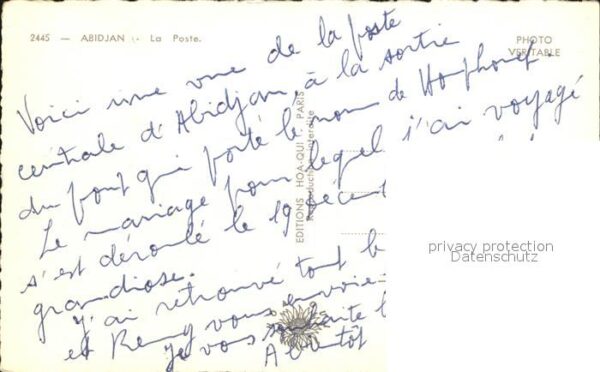 2445 — ABIDJAN — La Poste.
PHOTO
VERITABLE
Voici une vue de la poste
centrale d'Abidjan, à la sortie
du pont qui porte le nom de Houphouet
Le mariage pour lequel j'ai voyagé
s'est déroulé le 19 décent
grandiose.
J'ai retrouvé tout
et Remy vous envoie
je vous souhaite
A bientôt
EDITIONS HOA-QUI - PARIS
Reproduction interdite
privacy protection
Datenschutz